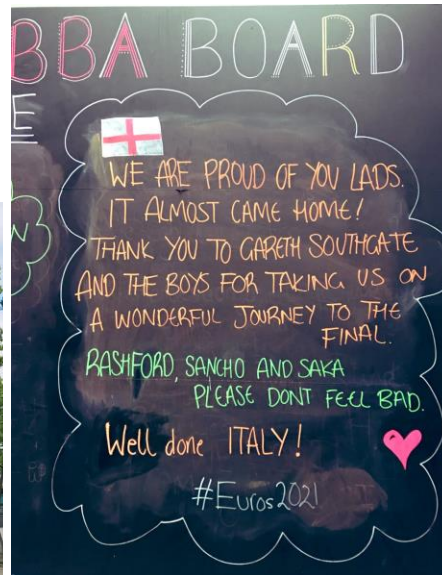 BBA BOARD
E
N
WE ARE PROUD OF YOU LADS.
IT ALMOST CAME HOME!
THANK YOU TO GARETH SOUTHGATE
AND THE BOYS FOR TAKING US ON
A WONDERFUL JOURNEY TO THE
FINAL.
RASHFORD, SANCHO AND SAKA
PLEASE DONT FEEL BAD.
Well done ITALY!
#Euros2021